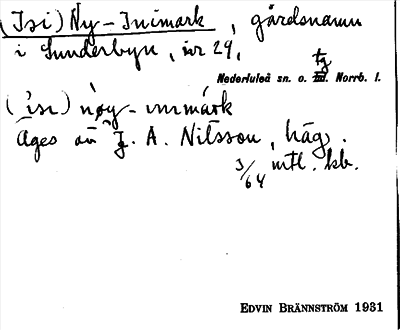 (Isi) Ny-Inimark, gårdsnamn
i Sunderbyn, nr 29,
tg
Nederluleå sn. o. hd. Norrb. l.
(isi) nøy-inimark
Äges av J. A. Nilsson, häg.
3/64 mtl. kb.
EDVIN BRÄNNSTRÖM 1931